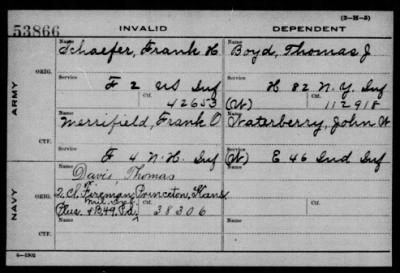 (3-H-3)
53866 INVALID DEPENDENT
Schaefer, Frank H Boyd, Thomas J
ORIG. Service Service
F 2 US Inf H 82 N.Y. Inf
ARMY Ctf. Ctf.
42653 (W) 112918
Merrifield, Frank O Waterberry, John W
CTF. Service Service
F 4 N.H. Inf (W) E 46 Ind Inf
Davis, Thomas
ORIG. Service Service
2 Cl. Fireman, Princeton, Kans
NAVY Ctf. Ctf.
38306
CTF. Service Service
6-1902